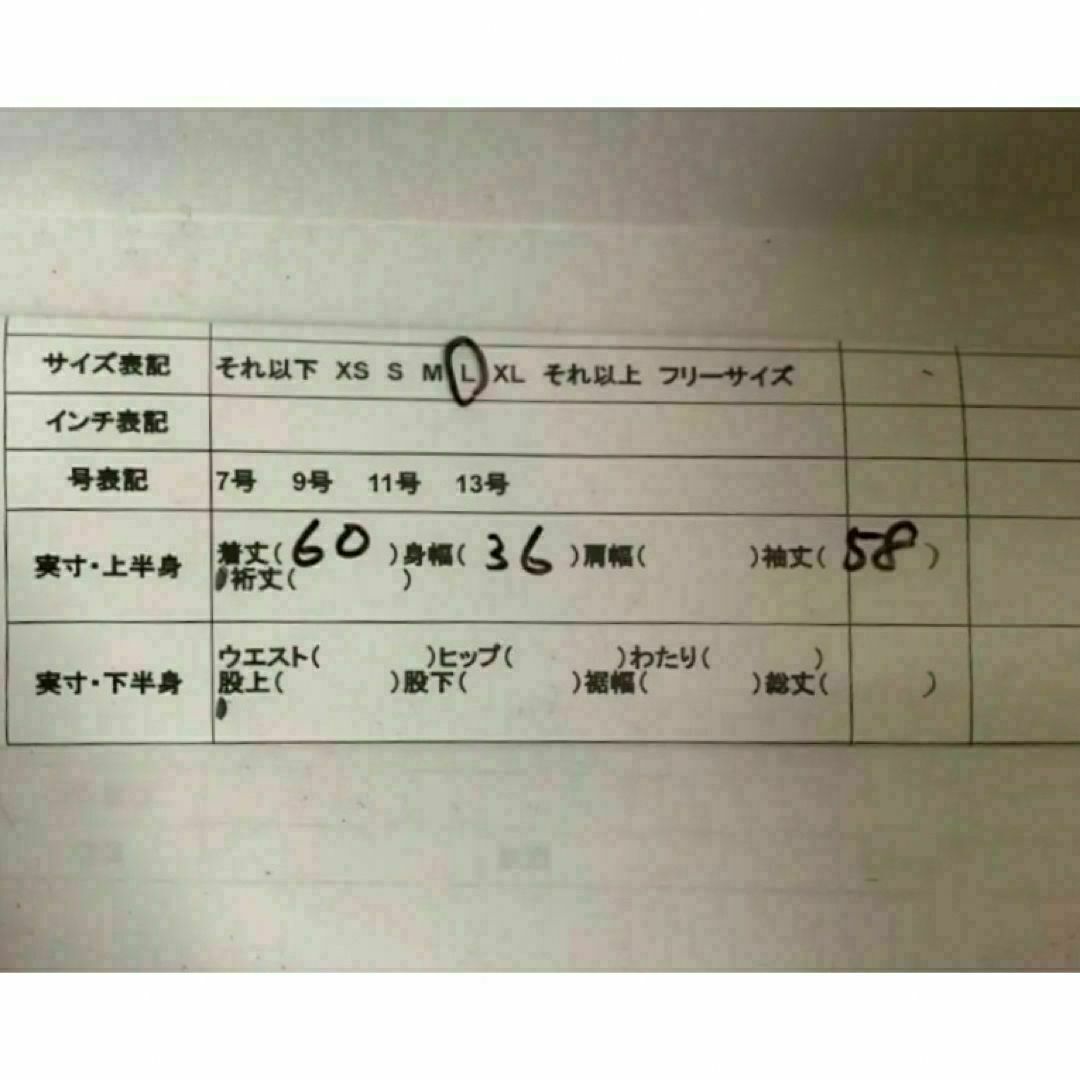 サイズ表記 それ以下 XS S M L XL それ以上 フリーサイズ
インチ表記
号表記 7号 9号 11号 13号
実寸・上半身 着丈( 60 )身幅( 36 )肩幅( )袖丈( 58 )
裄丈( )
実寸・下半身 ウエスト( )ヒップ( )わたり( )
股上( )股下( )裾幅( )総丈( )